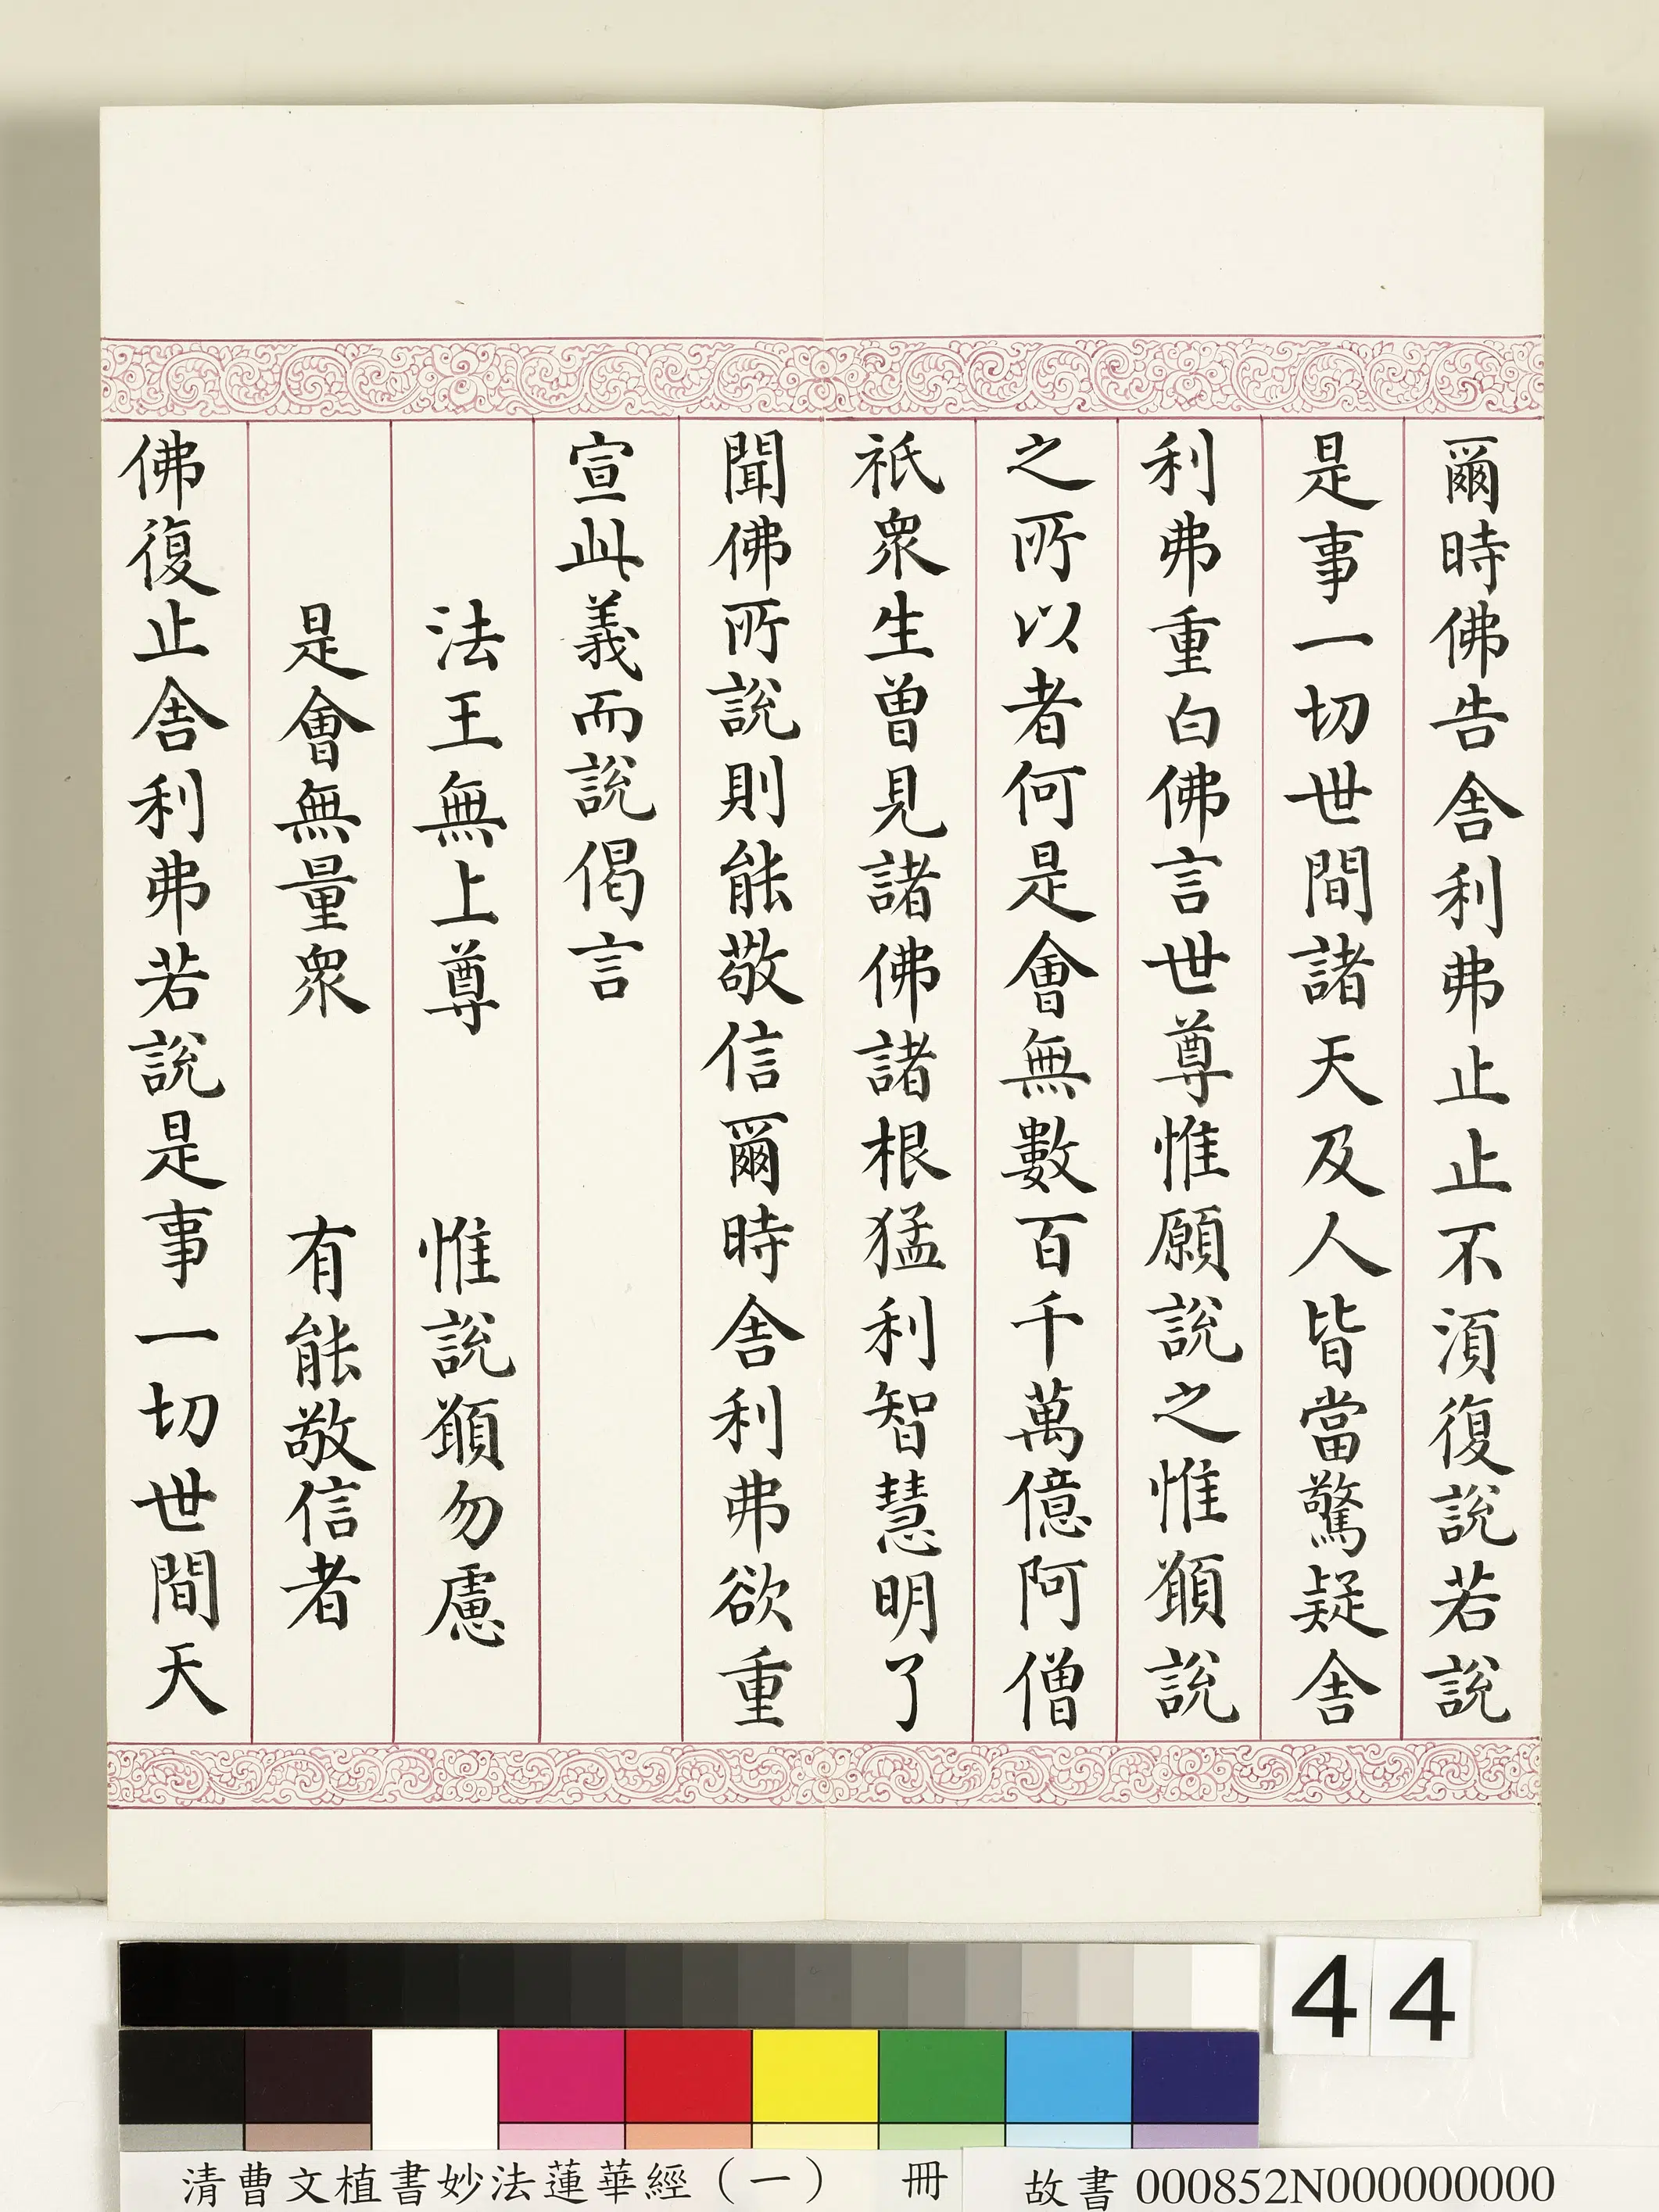 爾時佛告舍利弗止止不須復說若說
是事一切世間諸天及人皆當驚疑舍
利弗重白佛言世尊惟願說之惟頋說
之所以者何是會無數百千萬億阿僧
祇衆生曾見諸佛諸根猛利智慧明了
聞佛所說則能敬信爾時舍利弗欲重
宣此義而說偈言
法王無上尊　惟說頋勿慮
是會無量衆　有能敬信者
佛復止舍利弗若說是事一切世間天
44
清曹文植書妙法蓮華經（一）　冊　故書000852N000000000